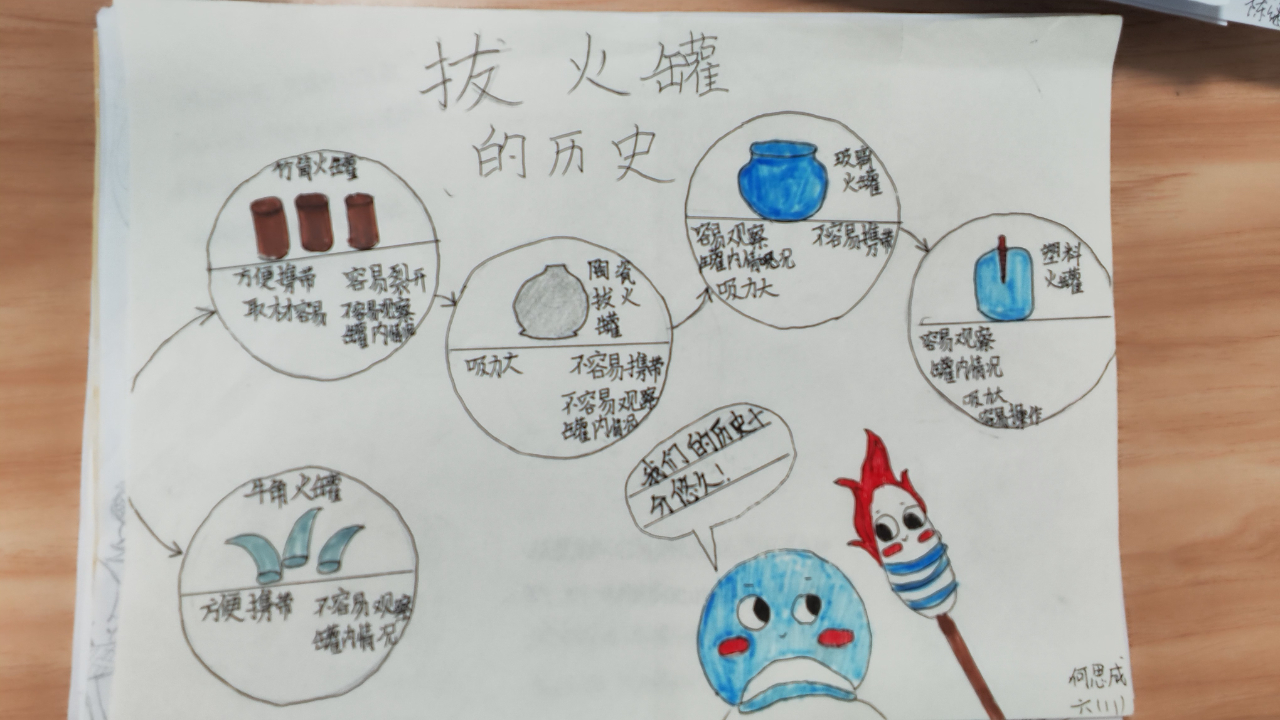 拔火罐
的历史
竹筒火罐
方便携带
取材容易
容易裂开
不容易观察
罐内情况
陶瓷
拔火
罐
吸力大
不容易携带
不容易观察
罐内情况
玻璃
火罐
容易观察
罐内情况
吸力大
不容易携带
塑料
火罐
容易观察
罐内情况
吸力大
容易操作
牛角火罐
方便携带
不容易观察
罐内情况
我们的历史十
分悠久！
何思成
六(1)